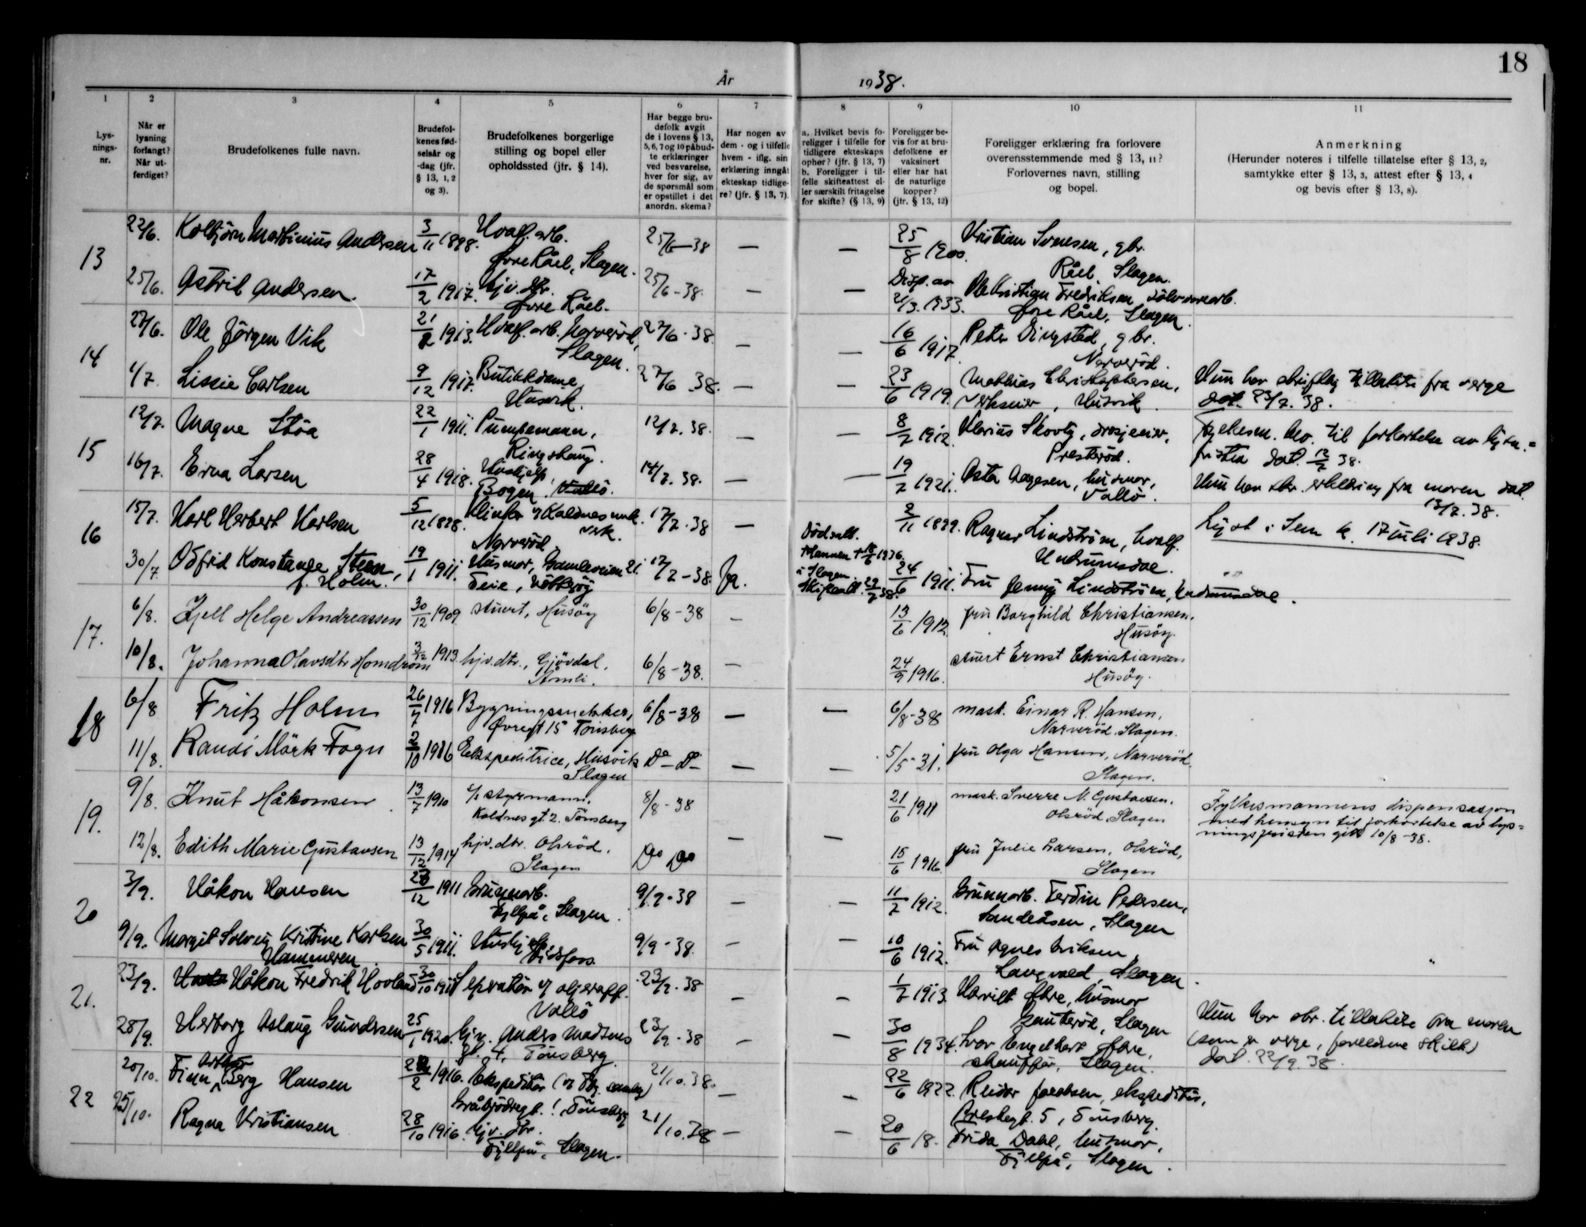 18
År 1938.
1 2 3 4 5 6 7 8 9 10 11
Lysnings-nr.
Når er lysning forlangt? Når utferdiget?
Brudefolkenes fulle navn.
Brudefolkenes fødselsår og -dag (jfr. § 13, 1, 2 og 3).
Brudefolkenes borgerlige stilling og bopel eller opholdssted (jfr. § 14).
Har begge brudefolk avgit de i lovens § 13, 5, 6, 7 og 10 påbudte erklæringer ved besvarelse, hver for sig, av de spørsmål som er opstillet i det anordn. skema?
Har nogen av dem - og i tilfelle hvem - iflg. sin erklæring inngått ekteskap tidligere? (jfr. § 13, 7).
a. Hvilket bevis foreligger i tilfelle for tidligere ekteskaps ophør? (jfr. § 13, 7) b. Foreligger i tilfelle skifteattest eller særskilt fritagelse for skifte? (§ 13, 9)
Foreligger bevis for at brudefolkene er vaksinert eller har hat de naturlige kopper? (jfr. § 13, 12)
Foreligger erklæring fra forlovere overensstemmende med § 13, 11? Forlovernes navn, stilling og bopel.
Anmerkning (Herunder noteres i tilfelle tillatelse efter § 13, 2, samtykke etter § 13, 3, attest efter § 13, 4 og bevis efter § 13, 8).
13 22/6. Kolbjørn Martinius Andersen 3/11 1898. Hvalf. arb. 25/6-38 — — 25/8 1900. Kristian Svensen, gbr.
Øvre Råel, Slagen. Råel, Slagen.
25/6. Astrid Andersen. 17/2 1917. hjv. dtr. 25/6-38. — — Disp. av Ole Kristian Fredriksen
Øvre Råel. 2/3. 1933. Øvre Råel, Slagen.
14 27/6. Ole Jørgen Vik 1913. Hvalf. arb. Narverød, 27/6-38 — — 16/6 1917. Peter Ringsted, gbr.
Slagen. Narverød.
4/7. Lissie Carlsen 9/12 1917. Butikkdame, 27/6 38. — — 23/6 1919. Mathias Christophersen, Hun har skriftlig tillatelse fra verge
Husvik. Husvik. dat. 23/7. 38.
15 12/7. Magne Støa 22/1 1911. Pumpemann, 12/7. 38. — — 8/2 1912. Skovly, drosjeeier, Fylkesm. bev. til forkortelse av lysn.=
Ringshaug. Presterød. fristen dat. 12/7 38.
16/7. Erna Larsen 28/4 1918. Hushjelp, 14/7. 38. — — 19/7 1921. Asta Aagesen, husmor, Hun har skr. erklæring fra moren dat.
Bogen, Vallø. Vallø. 13/7. 38.
16 15/7. Karl Herbert Karlsen 5/12 1898. Klinker v/ Kaldnes mek. 17/7-38 — 2/11 1899. Ragnar Lindstrøm, hvalf. Lyst i Sem k. 17 juli 1938.
Narverød vrk. Dødsatt. Undrumsdal.
30/7 Odfrid Konstanse Steen, 19/1 1911. Husmor, Gamleveien 21 17/7-38. ja. Mannen † 1936 24/6 1911. Fru Jenny Lindstrøm, Undrumsdal.
f. Holm. Teie, Nøtterøy i Slagen
Skifteatt. 38.
17. 6/8. Kjell Helge Andreassen 30/12 1909 stuert, Husøy 6/8-38 — 13/6 1912. fru Borghild Christiansen,
Husøy.
10/8. Johanna Olavsdtr Homdrom 1913 hjv. dtr., Gjøvdal, 6/8-38. — 24/9 1916. stuert Ernst Christiansen
Åmli. Husøy.
18 6/8 Fritz Holm 26/7 1916 Bygningssnekker, 6/8-38 — — 6/8-38 mask. Einar R. Hansen,
Øvregt 15 Tønsberg Narverød Slagen.
11/8. Randi Mörk Fogn 2/10 1916 Ekspeditrice, Husvik Do — Do — — — 5/5-31. fru Olga Hansen, Narverød
Slagen Slagen.
19. 9/8. Knut Håkonsen 13/7 1910 styrmann, 8/8-38 21/6 1911 mask. Sverre N. Gustavsen, Fylkesmannens dispensasjon
Kaldnes gt 2. Tønsberg Olsrød Slagen med hensyn til forkortelse av lys=
ningsfristen gitt 10/8-38.
12/8. Edith Marie Gustavsen 13/12 1914 hjv. dtr. Olsrød, Do Do — — 15/6 1916. fru Julie Larsen, Olsrød,
Slagen Slagen
20 3/9. Håkon Hansen 12 1911 Grunnarb. 9/9-38 — — 11/2 1912. Grunnarb. Ferdin Pedersen,
Fyllpå, Slagen. Sandeåsen, Slagen
9/9. Margit Solveig Kristine Karlsen 30/5 1911. Hushj. 9/9-38. — — 10/6 1912. Fru Agnes Eriksen
Hammeren Eidsfoss Slagen.
21. 23/9. Håkon Fredrik Hovland 30/10 Reparatør v/ oljeraff. 23/9-38 — — 1/7 1913. Øbre, husmor
Vallø Jonterød, Slagen
28/9. Herborg Aslaug Gundersen 25/1 1920. Anders Madsens 23/9-38 — — 30/8 1934. Ivar Engelhart Øbre, Hun har skr. tillatelse fra moren
gt. Tønsberg. chauffør, Slagen. (som er verge, foreldrene skilt)
dat. 22/9 38.
22 20/10. Finn Arthur Berg Hansen 2 1916. Ekspeditør 21/10. 38. — — 22/6 1922. Reidar Jacobsen, ekspeditør,
Gråbrødregt. 1, Tønsberg 5, Tønsberg.
25/10. Ragna Kristiansen 28/10 1916. hjv. dtr. 21/10. 38 — — 20/6 18. Frida Dahl, husmor,
Fyllpå, Slagen. Fyllpå, Slagen.